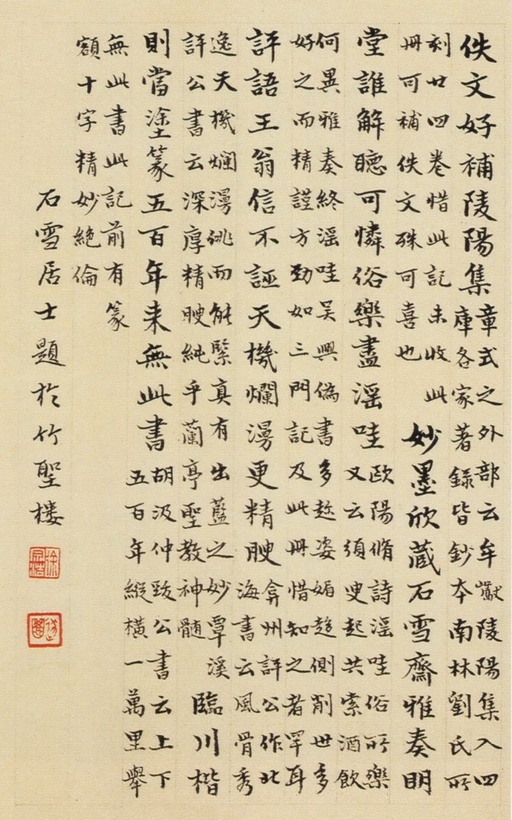 佚文好補陵陽集
章式之外部云牟巘陵陽集入四
庫各家著錄皆鈔本南林劉氏所
刻廿四卷惜此記未收此
冊可補佚文殊可喜也
妙墨欣蔵石雪齋雅奏明
堂誰解聽可憐俗樂盡滛哇
歐陽脩詩滛哇俗所樂
又云須臾起共索酒飲
何異雅奏終滛哇吴興偽書多趂姿媚趨側削世多
好之而精謹方勁如三門記及此冊惜知之者罕耳
評語王翁信不誣天機爛漫更精腴
弇州評公作此
海書云風骨秀
逸天機爛漫佻而能緊真有出藍之妙覃溪
評公書云深厚精腴純乎蘭亭聖教神髓
臨川楷
則當塗篆五百年来無此書
胡汲仲致公書云上下
五百年縱橫一萬里舉
無此書此記前有篆
額十字精妙絕倫
石雪居士題於竹聖樓